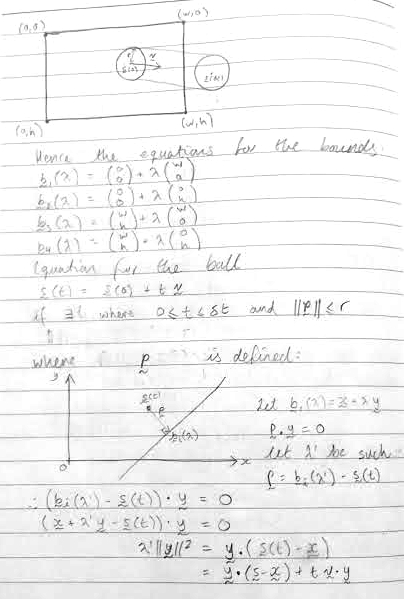 (0,0)
(w,0)
r
v
s(0)
s(δt)
(0,h)
(w,h)
Hence the equations for the bounds
b₁(λ) = (0 0) + λ(w 0)
b₂(λ) = (0 0) + λ(0 h)
b₃(λ) = (w h) + λ(w 0)
b₄(λ) = (w h) + λ(0 h)
Equation for the ball
s(t) = s(0) + t v
if ∃t where 0 ≤ t ≤ δt and ||p|| ≤ r
where p is defined:
y
s(t)
p
bᵢ(λ)
x
0
Let bᵢ(λ) = x + λ y
p · y = 0
let λ' be such
p = bᵢ(λ') - s(t)
∴ (bᵢ(λ') - s(t)) · y = 0
(x + λ'y - s(t)) · y = 0
λ'||y||² = y · (s(t) - x)
= y · (s - x) + t v · y